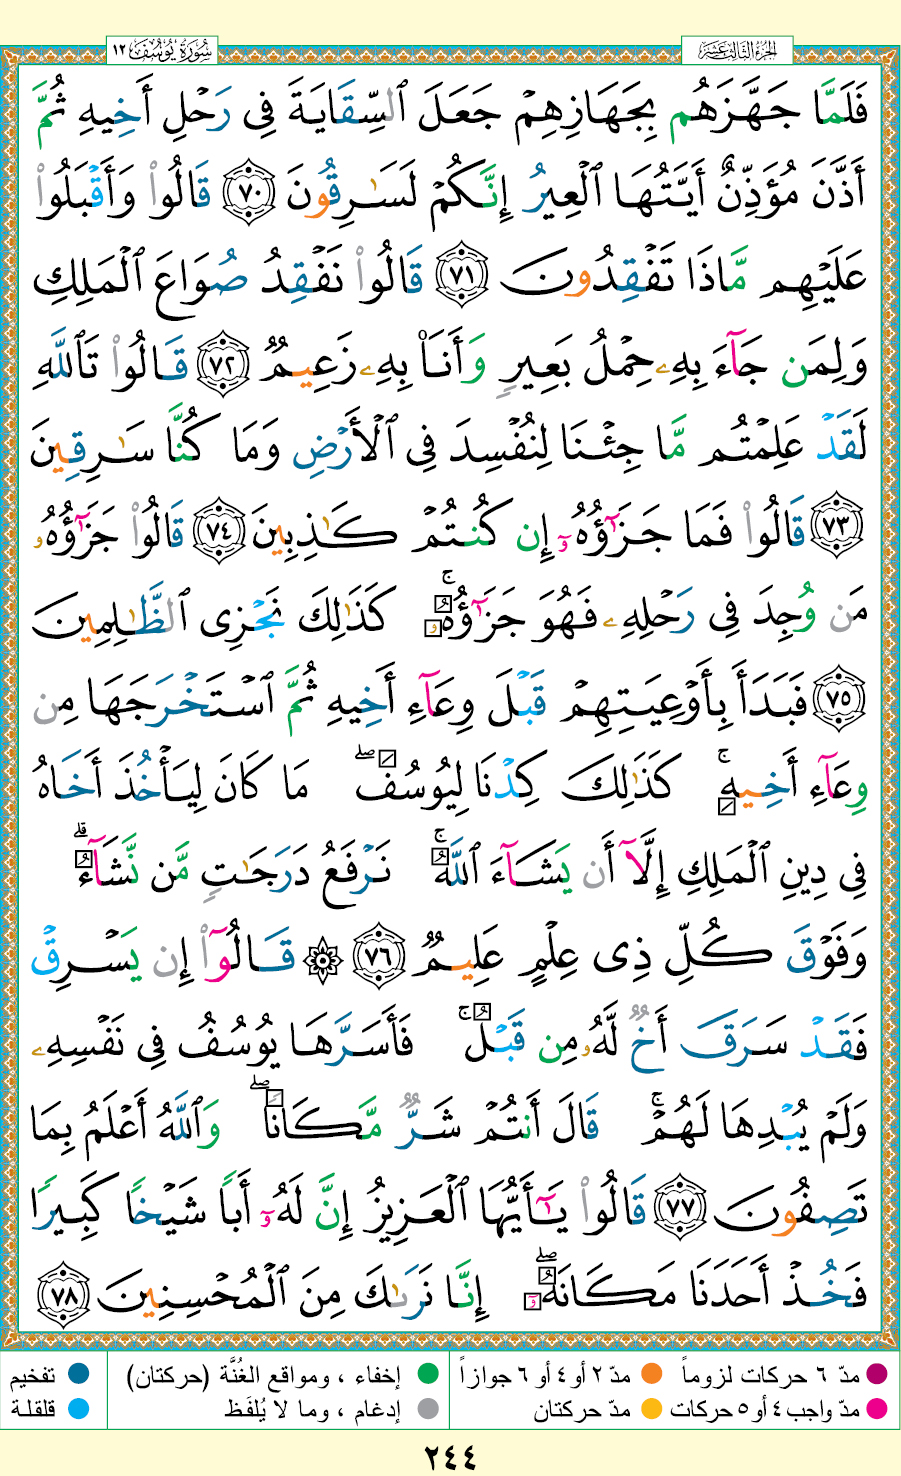 سُورَةُ يُوسُفَ ١٢
الجُزءُ الثَّالِثَ عَشَرَ
فَلَمَّا جَهَّزَهُم بِجَهَازِهِمْ جَعَلَ ٱلسِّقَايَةَ فِى رَحْلِ أَخِيهِ ثُمَّ
أَذَّنَ مُؤَذِّنٌ أَيَّتُهَا ٱلْعِيرُ إِنَّكُمْ لَسَـٰرِقُونَ ٧٠ قَالُوا۟ وَأَقْبَلُوا۟
عَلَيْهِم مَّاذَا تَفْقِدُونَ ٧١ قَالُوا۟ نَفْقِدُ صُوَاعَ ٱلْمَلِكِ
وَلِمَن جَآءَ بِهِۦ حِمْلُ بَعِيرٍ وَأَنَا۠ بِهِۦ زَعِيمٌ ٧٢ قَالُوا۟ تَٱللَّهِ
لَقَدْ عَلِمْتُم مَّا جِئْنَا لِنُفْسِدَ فِى ٱلْأَرْضِ وَمَا كُنَّا سَـٰرِقِينَ
٧٣ قَالُوا۟ فَمَا جَزَٰٓؤُهُۥٓ إِن كُنتُمْ كَـٰذِبِينَ ٧٤ قَالُوا۟ جَزَٰٓؤُهُۥ
مَن وُجِدَ فِى رَحْلِهِۦ فَهُوَ جَزَٰٓؤُهُۥ ۚ كَذَٰلِكَ نَجْزِى ٱلظَّـٰلِمِينَ
٧٥ فَبَدَأَ بِأَوْعِيَتِهِمْ قَبْلَ وِعَآءِ أَخِيهِ ثُمَّ ٱسْتَخْرَجَهَا مِن
وِعَآءِ أَخِيهِ ۚ كَذَٰلِكَ كِدْنَا لِيُوسُفَ ۖ مَا كَانَ لِيَأْخُذَ أَخَاهُ
فِى دِينِ ٱلْمَلِكِ إِلَّآ أَن يَشَآءَ ٱللَّهُ ۚ نَرْفَعُ دَرَجَـٰتٍ مَّن نَّشَآءُ ۗ
وَفَوْقَ كُلِّ ذِى عِلْمٍ عَلِيمٌ ٧٦ ۞ قَالُوٓا۟ إِن يَسْرِقْ
فَقَدْ سَرَقَ أَخٌ لَّهُۥ مِن قَبْلُ ۚ فَأَسَرَّهَا يُوسُفُ فِى نَفْسِهِۦ
وَلَمْ يُبْدِهَا لَهُمْ ۚ قَالَ أَنتُمْ شَرٌّ مَّكَانًا ۖ وَٱللَّهُ أَعْلَمُ بِمَا
تَصِفُونَ ٧٧ قَالُوا۟ يَـٰٓأَيُّهَا ٱلْعَزِيزُ إِنَّ لَهُۥٓ أَبًا شَيْخًا كَبِيرًا
فَخُذْ أَحَدَنَا مَكَانَهُۥٓ ۖ إِنَّا نَرَىٰكَ مِنَ ٱلْمُحْسِنِينَ ٧٨
مدّ ٦ حركات لزوماً مدّ ٢ أو ٤ أو ٦ جوازاً إخفاء ، ومواقع الغُنَّة (حركتان) تفخيم
مدّ واجب ٤ أو ٥ حركات مدّ حركتان إدغام ، وما لا يُلفَظ قلقلة
٢٤٤